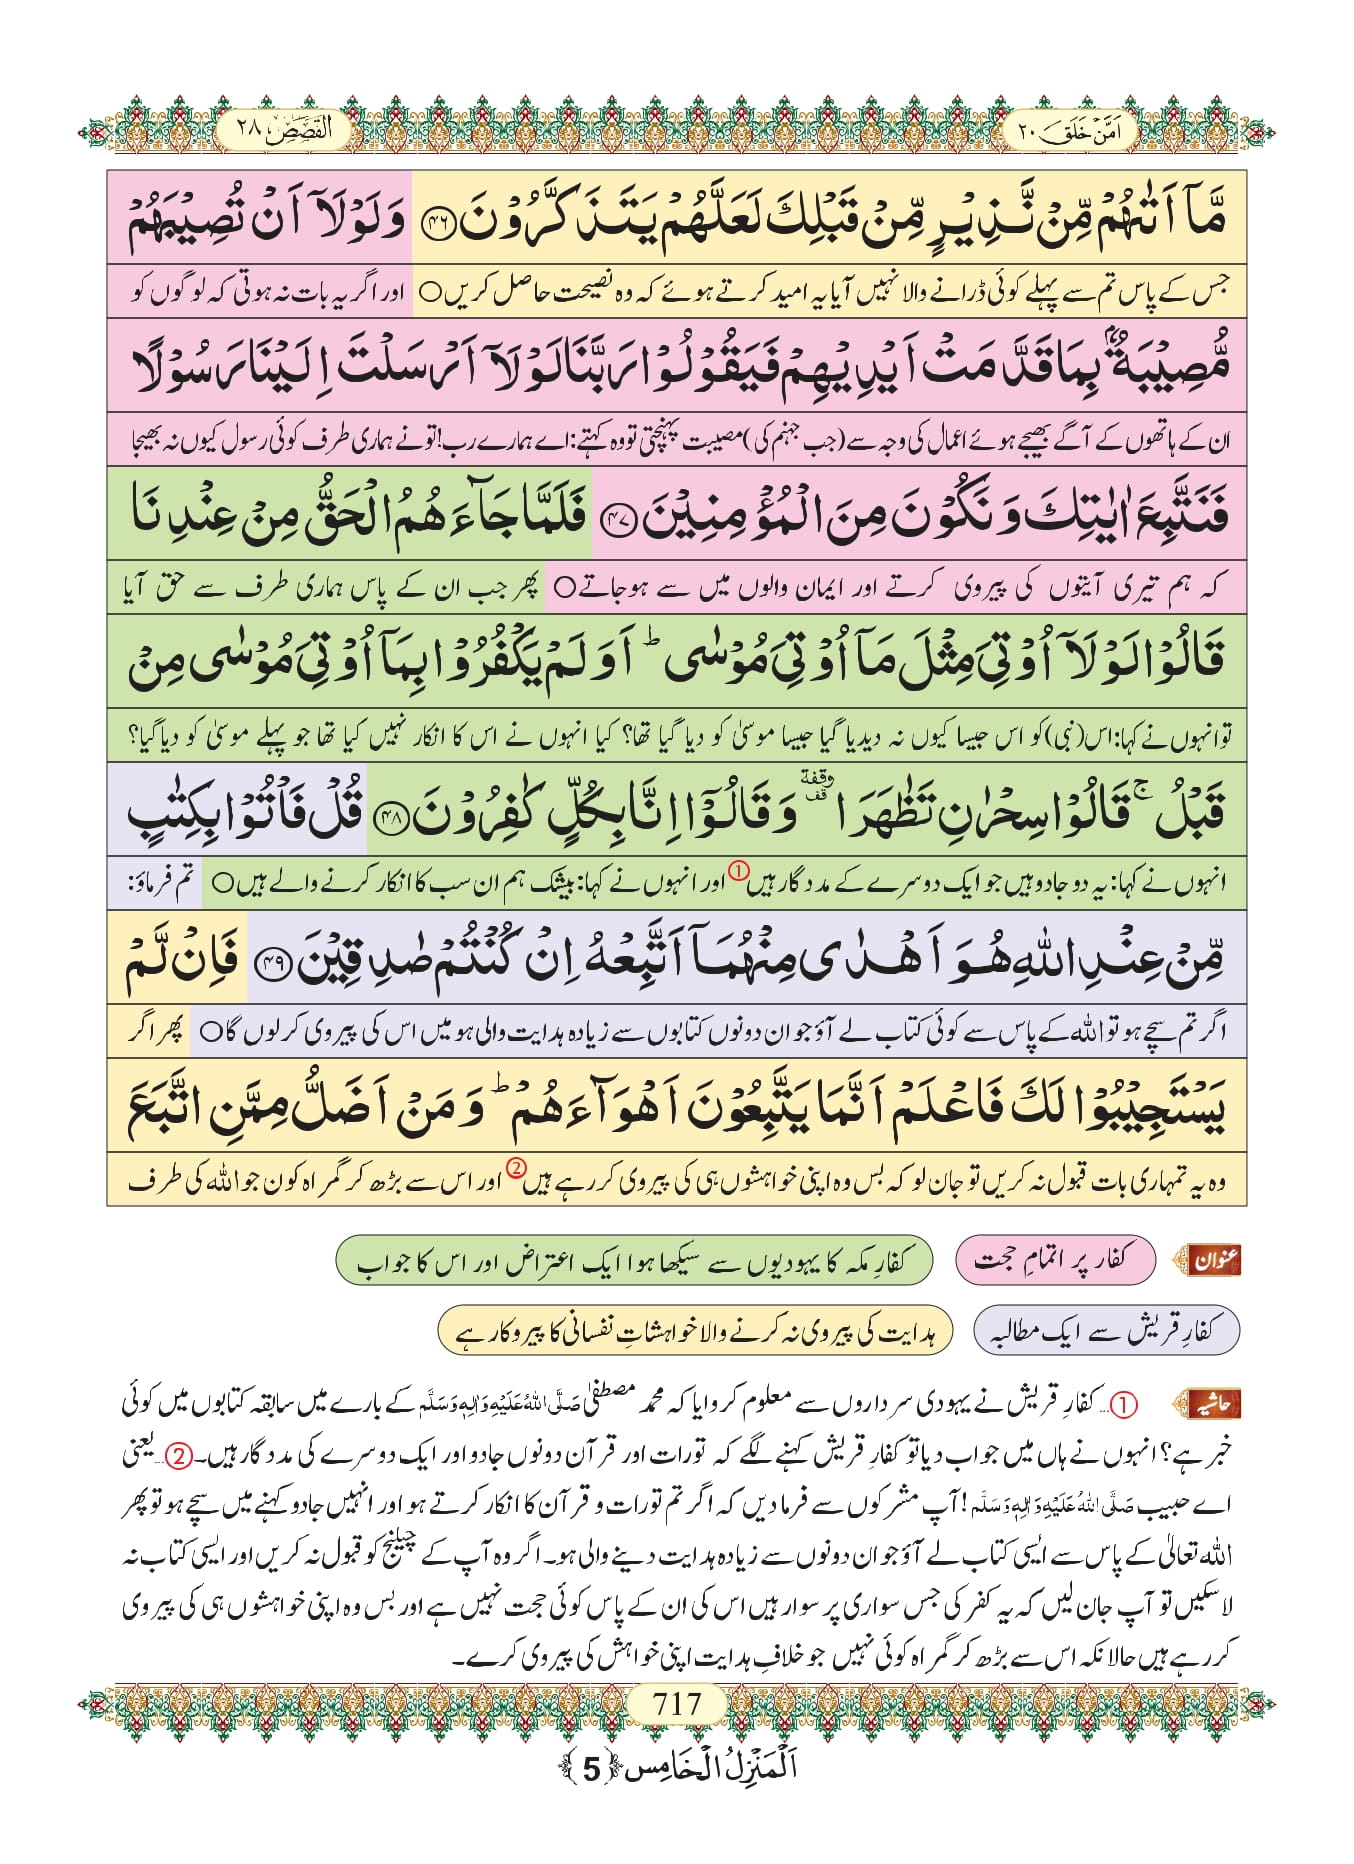 اَمَّنْ خَلَقَ ٢٠
القصص ٢٨
مَّاۤ اَتٰىهُمْ مِّنْ نَّذِیْرٍ مِّنْ قَبْلِكَ لَعَلَّهُمْ یَتَذَكَّرُوْنَ ﴿۴۶﴾ وَ لَوْلَاۤ اَنْ تُصِیْبَهُمْ
جس کے پاس تم سے پہلے کوئی ڈرانے والا نہیں آیا یہ امید کرتے ہوئے کہ وہ نصیحت حاصل کریں○ اور اگر یہ بات نہ ہوتی کہ لوگوں کو
مُّصِیْبَةٌۢ بِمَا قَدَّمَتْ اَیْدِیْهِمْ فَیَقُوْلُوْا رَبَّنَا لَوْلَاۤ اَرْسَلْتَ اِلَیْنَا رَسُوْلًا
ان کے ہاتھوں کے آگے بھیجے ہوئے اعمال کی وجہ سے (جب جہنم کی) مصیبت پہنچتی تو وہ کہتے: اے ہمارے رب! تو نے ہماری طرف کوئی رسول کیوں نہ بھیجا
فَنَتَّبِعَ اٰیٰتِكَ وَ نَكُوْنَ مِنَ الْمُؤْمِنِیْنَ ﴿۴۷﴾ فَلَمَّا جَآءَهُمُ الْحَقُّ مِنْ عِنْدِنَا
کہ ہم تیری آیتوں کی پیروی کرتے اور ایمان والوں میں سے ہوجاتے○ پھر جب ان کے پاس ہماری طرف سے حق آیا
قَالُوْا لَوْلَاۤ اُوْتِیَ مِثْلَ مَاۤ اُوْتِیَ مُوْسٰىؕ اَوَ لَمْ یَكْفُرُوْا بِمَاۤ اُوْتِیَ مُوْسٰى مِنْ
تو انہوں نے کہا: اس (نبی) کو اس جیسا کیوں نہ دیدیا گیا جیسا موسیٰ کو دیا گیا تھا؟ کیا انہوں نے اس کا انکار نہیں کیا تھا جو پہلے موسیٰ کو دیا گیا؟
قَبْلُۚ قَالُوْا سِحْرٰنِ تَظٰهَرَا وقفۃ قف وَ قَالُوْۤا اِنَّا بِكُلٍّ كٰفِرُوْنَ ﴿۴۸﴾ قُلْ فَاْتُوْا بِكِتٰبٍ
انہوں نے کہا: یہ دو جادو ہیں جو ایک دوسرے کے مددگار ہیں① اور انہوں نے کہا: بیشک ہم ان سب کا انکار کرنے والے ہیں○ تم فرماؤ:
مِّنْ عِنْدِ اللّٰهِ هُوَ اَهْدٰى مِنْهُمَاۤ اَتَّبِعْهُ اِنْ كُنْتُمْ صٰدِقِیْنَ ﴿۴۹﴾ فَاِنْ لَّمْ
اگر تم سچے ہو تو اللہ کے پاس سے کوئی کتاب لے آؤ جو ان دونوں کتابوں سے زیادہ ہدایت والی ہو میں اس کی پیروی کرلوں گا○ پھر اگر
یَسْتَجِیْبُوْا لَكَ فَاعْلَمْ اَنَّمَا یَتَّبِعُوْنَ اَهْوَآءَهُمْؕ وَ مَنْ اَضَلُّ مِمَّنِ اتَّبَعَ
وہ یہ تمہاری بات قبول نہ کریں تو جان لو کہ بس وہ اپنی خواہشوں ہی کی پیروی کررہے ہیں② اور اس سے بڑھ کر گمراہ کون جو اللہ کی طرف
عنوان کفار پر اتمامِ حجت کفارِ مکہ کا یہودیوں سے سیکھا ہوا ایک اعتراض اور اس کا جواب
کفارِ قریش سے ایک مطالبہ ہدایت کی پیروی نہ کرنے والا خواہشاتِ نفسانی کا پیروکار ہے
حاشیہ ①… کفارِ قریش نے یہودی سرداروں سے معلوم کروایا کہ محمد مصطفیٰ صَلَّی اللہُ عَلَیْہِ وَاٰلِہٖ وَسَلَّم کے بارے میں سابقہ کتابوں میں کوئی
خبر ہے؟ انہوں نے ہاں میں جواب دیا تو کفارِ قریش کہنے لگے کہ تورات اور قرآن دونوں جادو اور ایک دوسرے کی مددگار ہیں۔ ②… یعنی
اے حبیب صَلَّی اللہُ عَلَیْہِ وَاٰلِہٖ وَسَلَّم! آپ مشرکوں سے فرمادیں کہ اگر تم تورات و قرآن کا انکار کرتے ہو اور انہیں جادو کہنے میں سچے ہو تو پھر
اللہ تعالیٰ کے پاس سے ایسی کتاب لے آؤ جو ان دونوں سے زیادہ ہدایت دینے والی ہو۔ اگر وہ آپ کے چیلنج کو قبول نہ کریں اور ایسی کتاب نہ
لاسکیں تو آپ جان لیں کہ یہ کفر کی جس سواری پر سوار ہیں اس کی ان کے پاس کوئی حجت نہیں ہے اور بس وہ اپنی خواہشوں ہی کی پیروی
کررہے ہیں حالانکہ اس سے بڑھ کر گمراہ کوئی نہیں جو خلافِ ہدایت اپنی خواہش کی پیروی کرے۔
717
اَلْمَنْزِلُ الْخَامِس ﴿5﴾